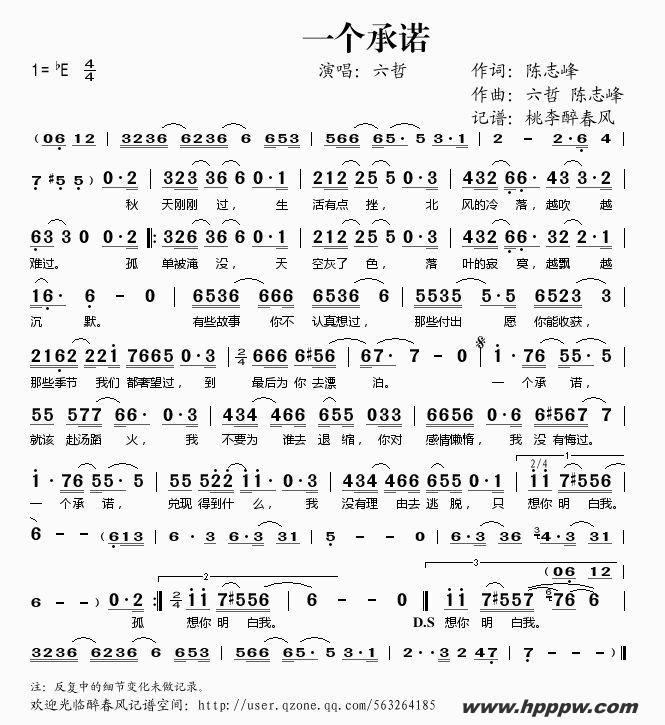 一个承诺
1= ♭E 4/4
演唱：六哲
作词：陈志峰
作曲：六哲 陈志峰
记谱：桃李醉春风
( 06 12 | 3236 6236 6 653 | 566 65· 5 3·1 | 2 - 2·6 4
7 ♯5 5 ) 0·2 | 323 36 6 0·1 | 212 25 5 0·3 | 432 66· 3 3·2
秋 天刚刚 过， 生 活有点 挫， 北 风的冷 落，越吹 越
63 3 0 0·3 ‖: 326 36 6 0·1 | 212 25 5 0·3 | 432 66· 32 2·1
难过。 孤 单被淹 没， 天 空灰了 色， 落 叶的寂 寞，越飘 越
16· 6 - 0 | 6536 666 6536 6 | 5535 5·5 6523 3
沉 默。 有些故事 你不 认真想过， 那些付出 愿 你能收获，
2162 221 7665 0·3 | 2/4 666 6♯56 | 67· 7 - 0 𝄋 1·76 55·5
那些季节 我们 都奢望过， 到 最后为 你 去漂 泊。 一 个 承 诺，
55 577 66· 0·3 | 434 466 655 033 | 6656 0·6 6♯567 7
就该 赴汤蹈 火， 我 不要为 谁去 退 缩，你对 感情懒惰， 我 没 有悔过。
1·76 55·5 | 55 522 11· 0·3 | 434 466 655 0·1 | 1 2/4 11 7♯556
一 个承 诺， 兑现 得到什 么， 我 没有理 由去 逃 脱， 只 想你 明 白我。
6 - - ( 613 | 6·3 6·3 31 | 5 - - 0 | 6·3 36 4·3 31
2 3 ( 06 12
6 - - ) 0·2 :‖ 2/4 11 7♯556 | 6 - - 0 ‖ 11 7♯557 76 6
孤 想你 明 白我。 D.S 想你 明 白我。
3236 6236 6 653 | 566 65· 5 3·1 | 2 - 2·6 4 | 7 ♯5 5 - 0 ) ‖
注：反复中的细节变化未做记录。
欢迎光临醉春风记谱空间：http://user.qzone.qq.com/563264185
www.hpppw.com